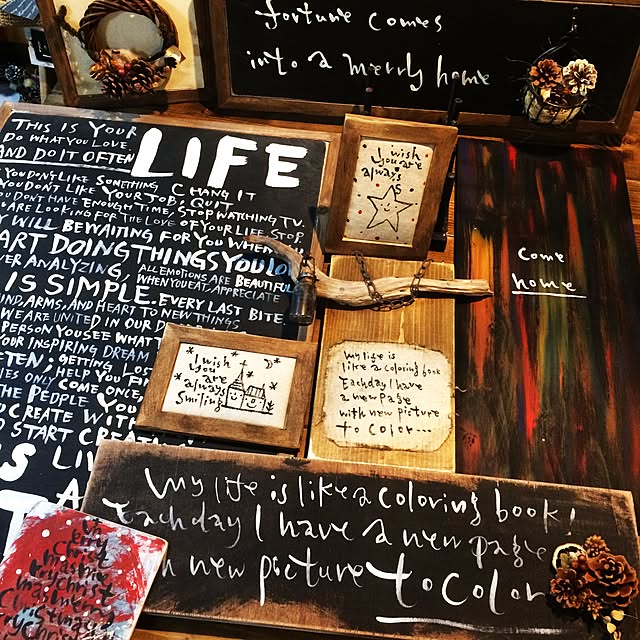 fortune comes
into a merry home
THIS IS YOUR
DO WHAT YOU LOVE,
AND DO IT OFTEN
LIFE
YOU DON'T LIKE SOMETHING, CHANG IT
YOU DON'T LIKE YOUR JOB, QUIT
YOU DON'T HAVE ENOUGH TIME, STOP WATCHING TV.
ARE LOOKING FOR THE LOVE OF YOUR LIFE, STOP.
WILL BEWAITING FOR YOU WHEN
ART DOING THINGS YOU LO
ER ANALYZING, ALL EMOTIONS ARE BEAUTIFUL
WHEN YOU EAT, APPRECIATE
IS SIMPLE. EVERY LAST BITE
IND, ARMS, AND HEART TO NEW THINGS,
WE ARE UNITED IN OUR D
PERSON YOU SEE WHAT T
YOUR INSPIRING DREAM
TEN; GETTING LOST
HELP YOU FIN
IES ONLY COME ONCE,
THE PEOPLE YOU
CREATE WITH
START CREATI
S LIV
I wish
you are
always
come
home
I wish
you are
always
smiling
my life is
like a coloring book
Each day I have
a new page
with new picture
to color...
my life is like a coloring book!
Each day I have a new page
new picture to color